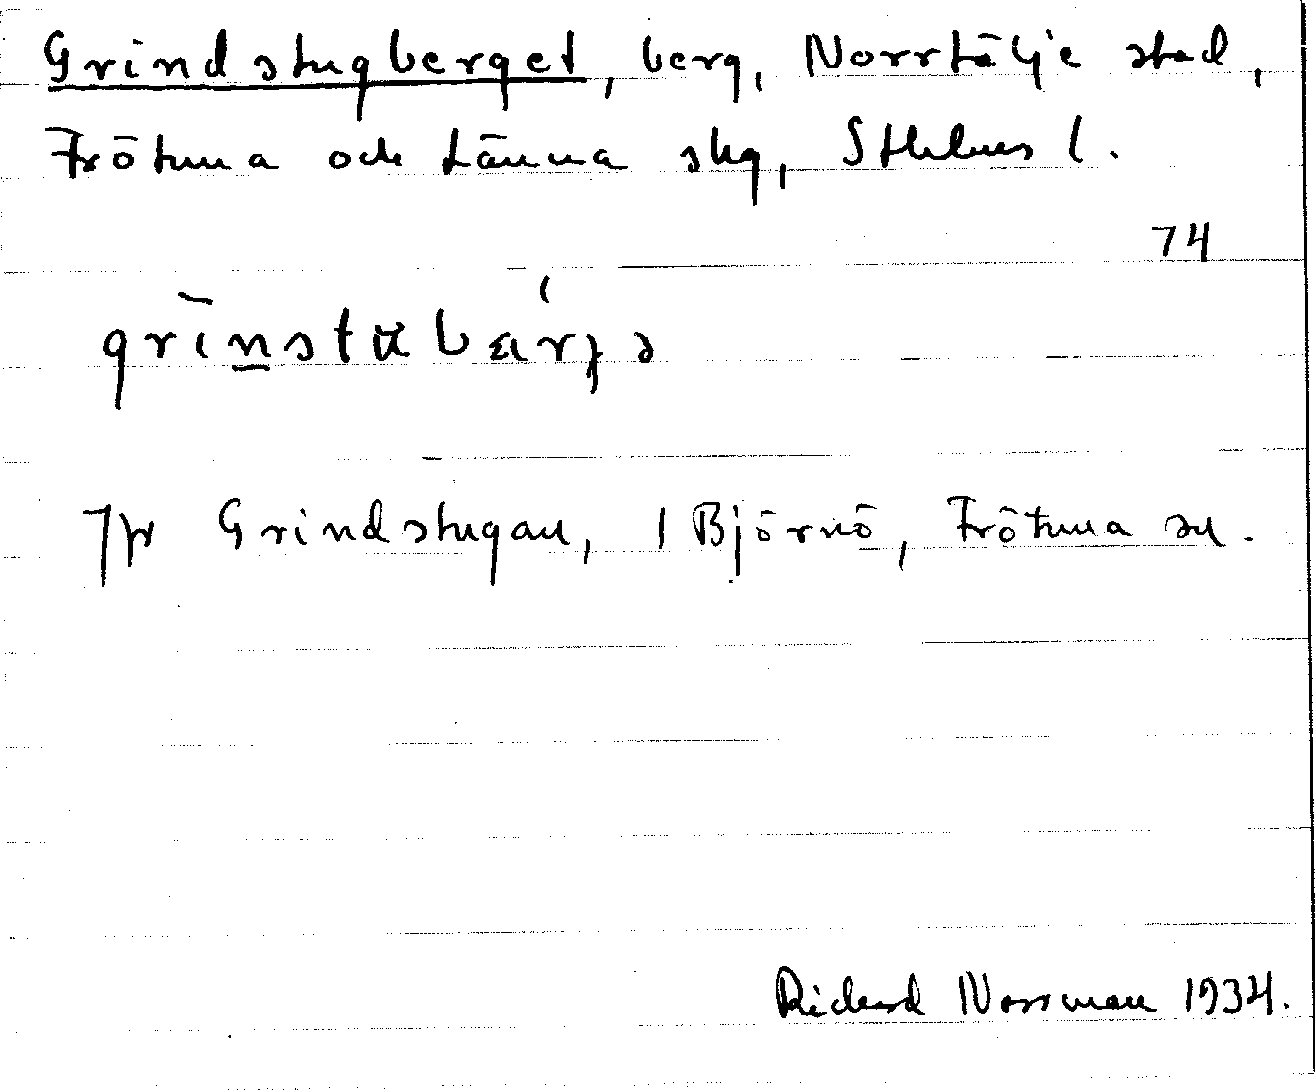 Grindstugberget, berg, Norrtälje stad,
Frötuna och Länna skg, Sthlms l.
74
Jfr Grindstugan, 1 Björnö, Frötuna sn.
Richard Norrman 1934.